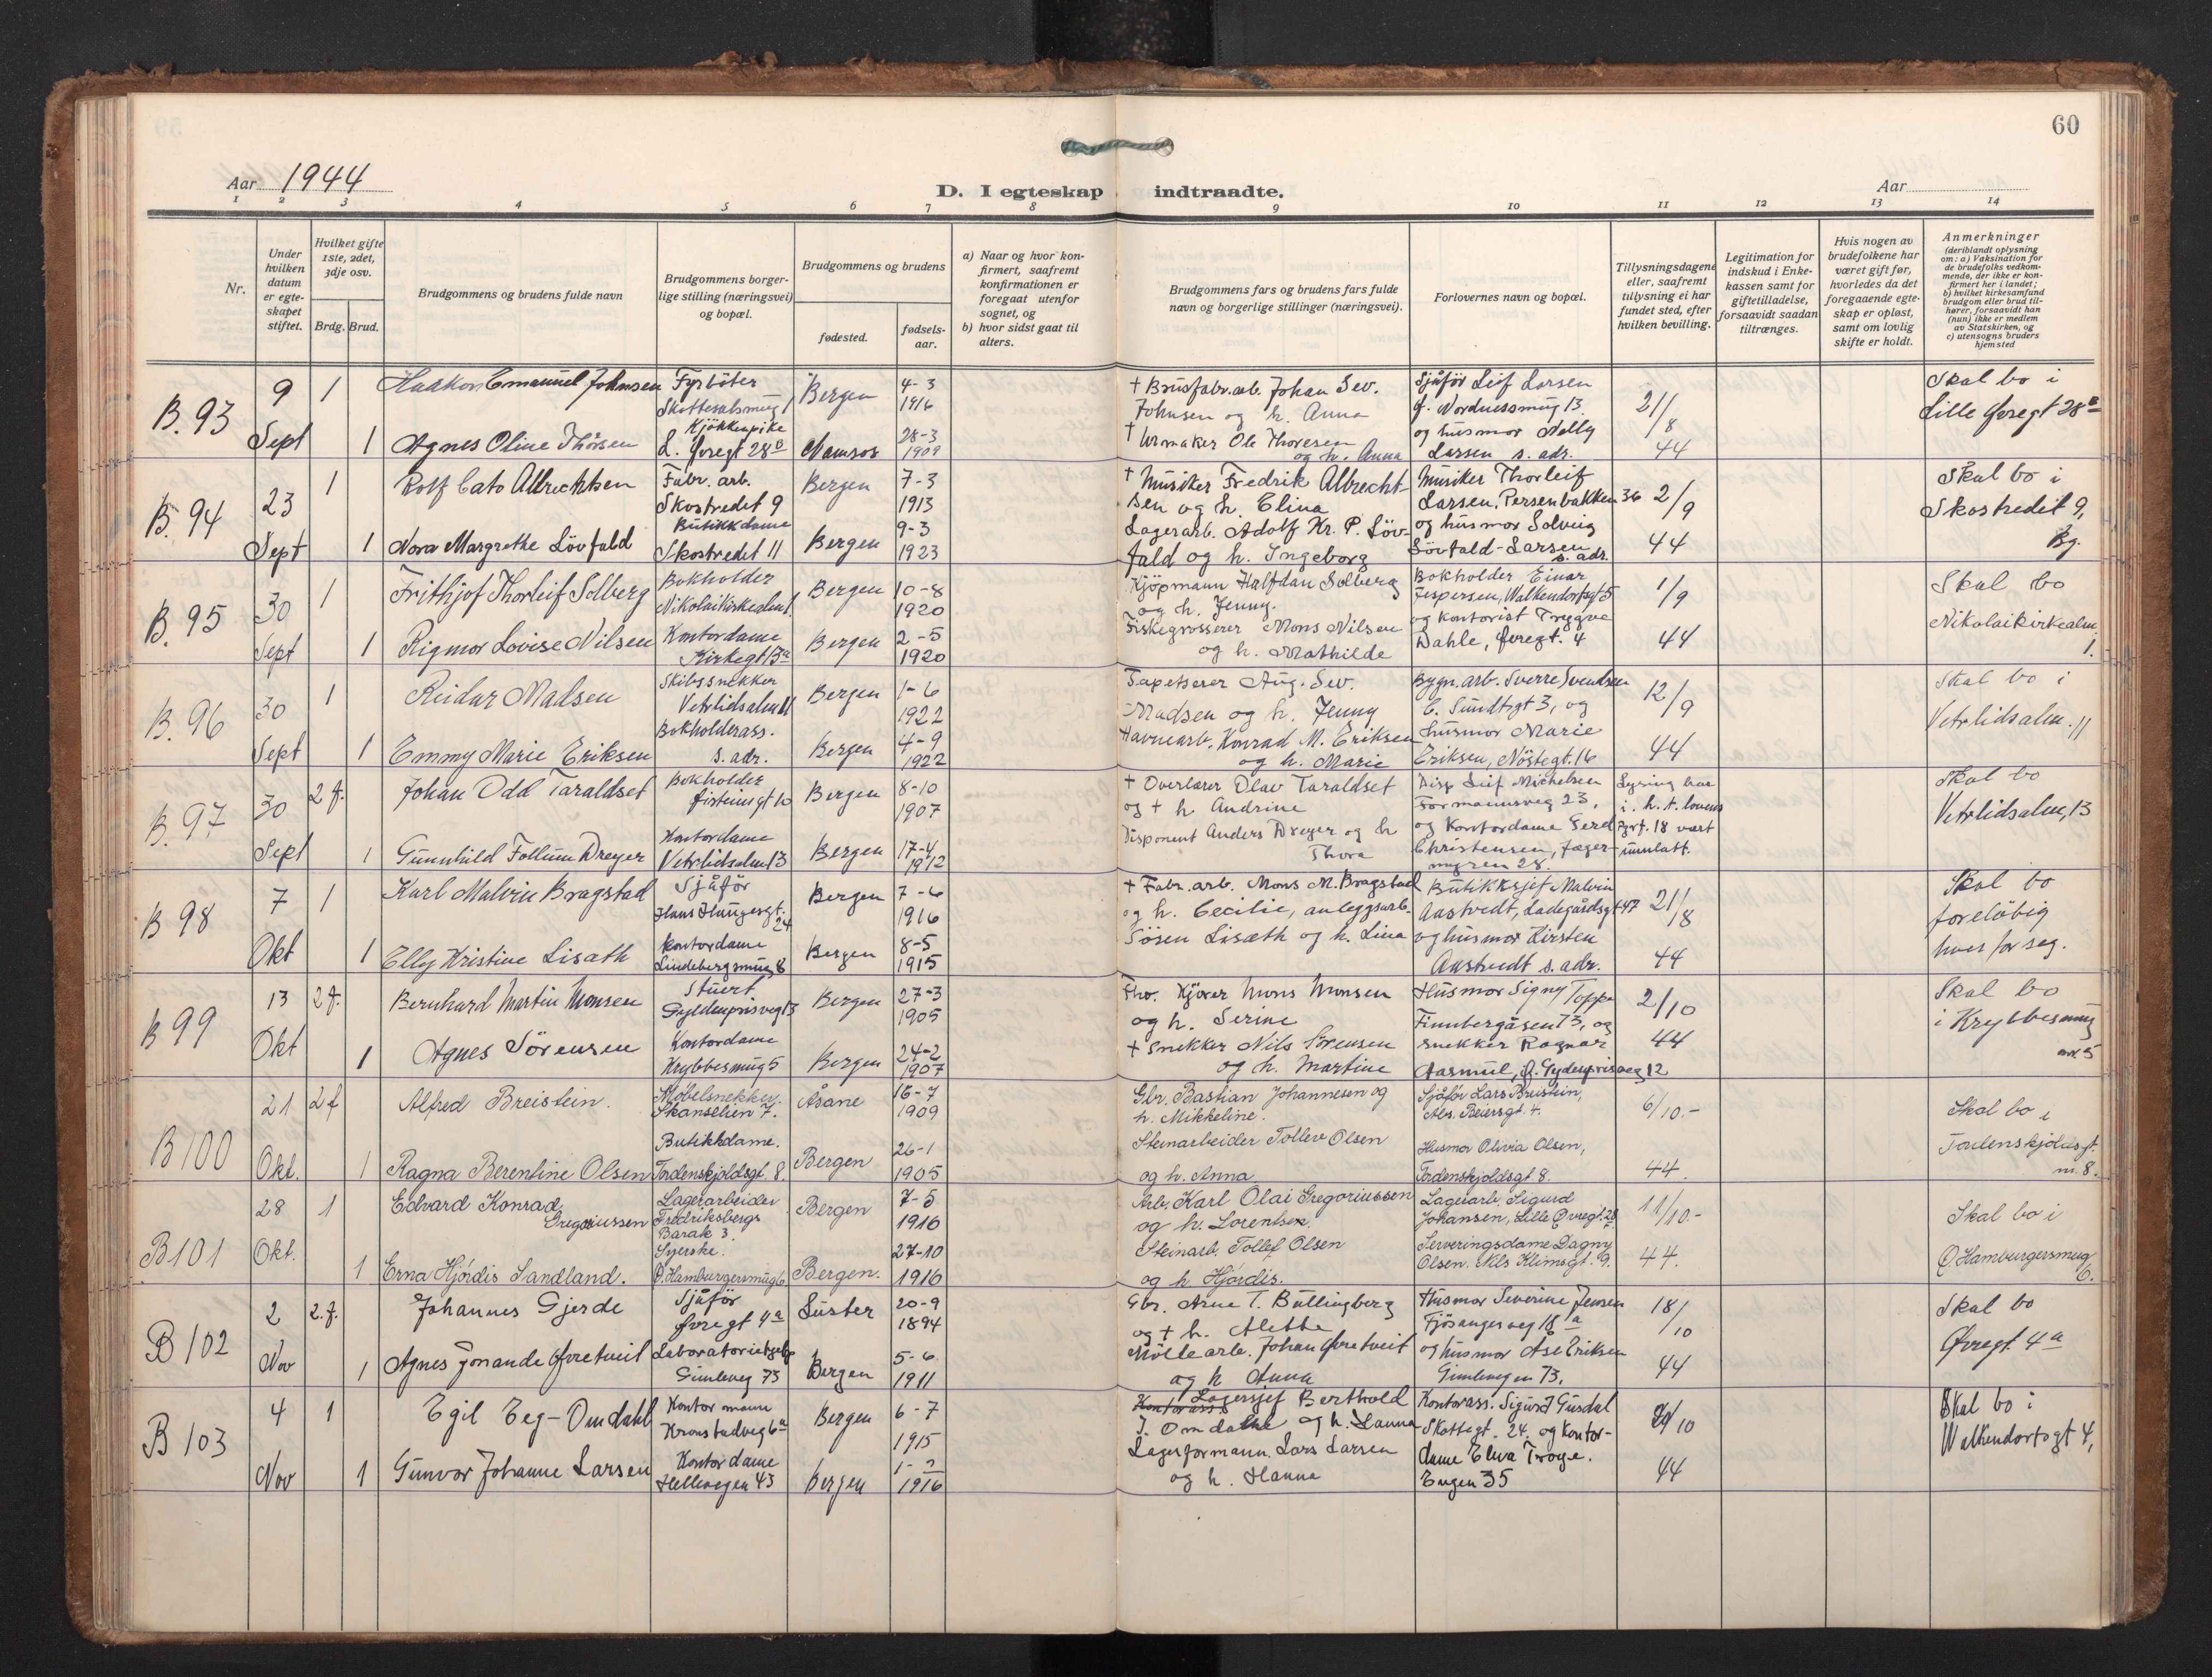 60
Aar 1944
D. I egteskap indtraadte.
Aar
1 2 3 4 5 6 7 8 9 10 11 12 13 14
Nr.
Under
hvilken
datum
er egte-
skapet
stiftet.
Hvilket gifte
1ste, 2det,
3dje osv.
Brdg. Brud.
Brudgommens og brudens fulde navn
Brudgommens borger-
lige stilling (næringsvei)
og bopæl.
Brudgommens og brudens
fødested.
fødsels-
aar.
a) Naar og hvor kon-
firmert, saafremt
konfirmationen er
foregaat utenfor
sognet, og
b) hvor sidst gaat til
alters.
Brudgommens fars og brudens fars fulde
navn og borgerlige stillinger (næringsvei).
Forlovernes navn og bopæl.
Tillysningsdagene
eller, saafremt
tillysning ei har
fundet sted, efter
hvilken bevilling.
Legitimation for
indskud i Enke-
kassen samt for
giftetilladelse,
forsaavidt saadan
tiltrænges.
Hvis nogen av
brudefolkene har
været gift før,
hvorledes da det
foregaaende egte-
skap er opløst,
samt om lovlig
skifte er holdt.
Anmerkninger
(deriblandt oplysning
om: a) Vaksination for
de brudefolks vedkom-
mende, der ikke er kon-
firmert her i landet;
b) hvilket kirkesamfund
brudgom eller brud til-
hører, forsaavidt han
(hun) ikke er medlem
av Statskirken, og
c) utensogns bruders
hjemsted
B. 93
9
Sept
1
1
Haakon Emanuel Johnsen
Agnes Oline Thorsen
Fyrbøter
Skottesalsmug 1
Kjøkkenpike
L. Øvregt 28 B
Bergen
Namsos
4-3
1916
28-3
1909
+ Brusfabr.arb. Johan Sev.
Johnsen og h. Anna
+ Urmaker Ole Thoresen
og h. Anna
Sjåfør Leif Larsen
Ø. Nordnessmug 13
og husmor Nelly
Larsen s. adr.
21/8
44
Skal bo i
Lille Øvregt 28 B
B. 94
23
Sept
1
1
Rolf Cato Albrechtsen
Nora Margrethe Løvfald
Fabr. arb.
Skostredet 9
Butikkdame
Skostredet 11
Bergen
Bergen
7-3
1913
9-3
1923
+ Musiker Fredrik Albrecht-
sen og h. Elina
Lagerarb. Adolf Kr. P. Løv-
fald og h. Ingeborg
Musiker Thorleif
Larsen, Persenbakken 36
og husmor Solveig
Løvfald-Larsen
s. adr.
2/9
44
Skal bo i
Skostredet 9,
Bg.
B. 95
30
Sept
1
1
Frithjof Thorleif Solberg
Rigmor Lovise Nilsen
Bokholder
Nikolaikirkealm. 1
Kontordame
Kirkegt 13a
Bergen
Bergen
10-8
1920
2-5
1920
Kjøpmann Halfdan Solberg
og h. Jenny.
Fiskegrosserer Mons Nilsen
og h. Mathilde
Bokholder Einar
Jespersen, Walkendorfsgt 5
og kontorist Trygve
Dahle, Øvregt. 4
1/9
44
Skal bo
Nikolaikirkealm.
1.
B. 96
30
Sept
1
1
Reidar Madsen
Emmy Marie Eriksen
Skibssnekker
Vetrlidsalm 11
Bokholderass.
s. adr.
Bergen
Bergen
1-6
1922
4-9
1922
Tapetserer Aug. Sev.
Madsen og h. Jenny
Havnearb. Konrad M. Eriksen
og h. Marie
Bygn. arb. Sverre Svendsen
C. Sundtsgt 3, og
husmor Marie
Eriksen, Nøstegt. 16
12/9
44
Skal bo i
Vetrlidsalm. 11
B. 97
30
Sept
2 f.
1
Johan Odd Taraldset
Gunnhild Follum Dreyer
Bokholder
Øisteinsgt 10
Kontordame
Vetrlidsalm 13
Bergen
Bergen
8-10
1907
17-4
1912
+ Overlærer Olav Taraldset
og + h Andrine
Disponent Anders Dreyer og h
Thora
Disp Leif Michelsen
Formannsveg 23,
og Kontordame Gerd
Christensen, Jæger-
mugren 28.
Lysning har
i. h. t. lovens
Pgrf. 18 vært
unnlatt.
Skal bo
Vetrlidsalm, 13
B 98
7
Okt
1
1
Karl Malvin Bragstad
Elly Kristine Lisæth
Sjåfør
Hans Haugesgt.
24
Kontordame
Lindebergsmug 8
Bergen
Bergen
7-6
1916
8-5
1915
+ Fabr. arb. Mons M. Bragstad
og h. Cecilie, anleggsarb.
Søren Lisæth og h. Lina
Butikksjef Malvin
Aastvedt, Ladegårdsgt 47
og husmor Kirsten
Aastvedt s. adr.
21/8
44
Skal bo
foreløbig
hver for seg.
B 99
13
Okt
2 f.
1
Bernhard Martin Monsen
Agnes Sørensen
Stuert
Gyldenprisveg 13
Kontordame
Krybbesmug 5
Bergen
Bergen
27-3
1905
24-2
1907
Fhv. Kjører Mons Monsen
og h. Serine
+ Snekker Nils Sørensen
og h. Martine
Husmor Signy Toppe
Finnbergåsen 73, og
snekker Ragnar
Aasmul, Ø. Gydenprisveg 12
2/10
44
Skal bo
i Krybbesmug
nr 5
B 100
21
Okt.
2 f
1
Alfred Breistein.
Ragna Berentine Olsen
Møbelsnekker.
Skanselien 7.
Butikkdame.
Tordenskjoldsgt. 8.
Åsane
Bergen
16-7
1909
26-1
1905
Gbr. Bastian Johannesen og
h. Mikkeline.
Steinarbeider Tollev Olsen
og h. Anna
Sjåfør Lars Breistein,
Abs. Beiersgt. 4.
Husmor Olivia Olsen,
Tordenskjoldsgt 8.
6/10.-
44.
Skal bo i
Tordenskjoldsgt.
nr. 8.
B 101
28
Okt.
1
1
Edvard Konrad
Gregoriussen
Erna Hjørdis Sandland.
Lagerarbeider
Fredriksbergs
Barak 3.
Syerske.
Ø. Hamburgersmug 6
Bergen
Bergen.
7-5
1916
27-10
1916
Arb. Karl Olai Gregoriussen
og h. Lorentse.
Steinarb. Tollef Olsen
og h. Hjørdis.
Lagerarb. Sigurd
Johansen, Lille Øvregt. 28
Serveringsdame Dagny
Olsen. Nils Klimsgt. 9.
11/10.-
44.
Skal bo i
Ø. Hamburgersmug
6.
B 102
2
Nov
2. f.
1
Johannes Gjerde
Agnes Jonande Øvretveit
Sjåfør
Øvregt 4a
Laboratoriehjelp
Gimleveg 73
Luster
Bergen
20-9
1894
5-6
1911
Gbr. Arne T. Bullingberg
og + h. Alethe
Møllearb. Johan Øvretveit
og h Anna
Husmor Severine Jensen
Fjøsangerveg 18 a
og husmor Åse Eriksen
Gimlevegen 73.
18/10
44
Skal bo
Øvregt 4a
B 103
4
Nov
1
1
Egil Eeg-Omdahl
Gunvor Johanne Larsen
Kontormann
Kronstadveg 6a
Kontordame
Hellevegen 43
Bergen
Bergen
6-7
1915
1916
Lagersjef Berthold
J. Omdahl og h. Hanna
Lagerformann. Lars Larsen
og h. Hanna
Kontorass. Sigurd Gusdal
Skottegt. 24, og kontor-
dame Elna Troye.
Engen 35
44
Skal bo i
Walkendorfsgt 4,